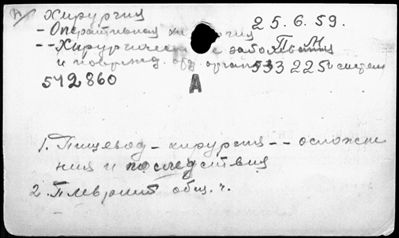 Хирургия
- Оперативная хирургия 25.6.59.
-- Хирургические заболевания
и поврежд. орг. 533225 и систем
572860
А
1. Пищевод - хирургия -- осложне
ния и последствия
2. Плеврит общ. ч.